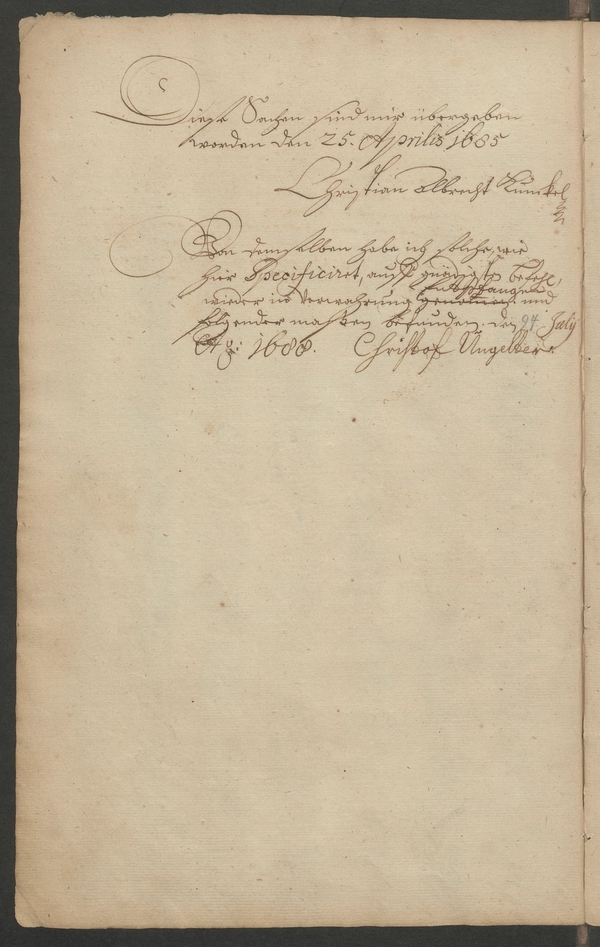 Diese Sachen sind mir übergeben
worden den 25. Aprilis 1685
Christian Albrecht Kunckel
Von demselben habe ich solche, wie
hier Specificiret, auff gnädigst befehl,
wieder in verwahrung empfangen und
folgender massen befunden. den 24 July
A͞o: 1688. Christof Ungelter